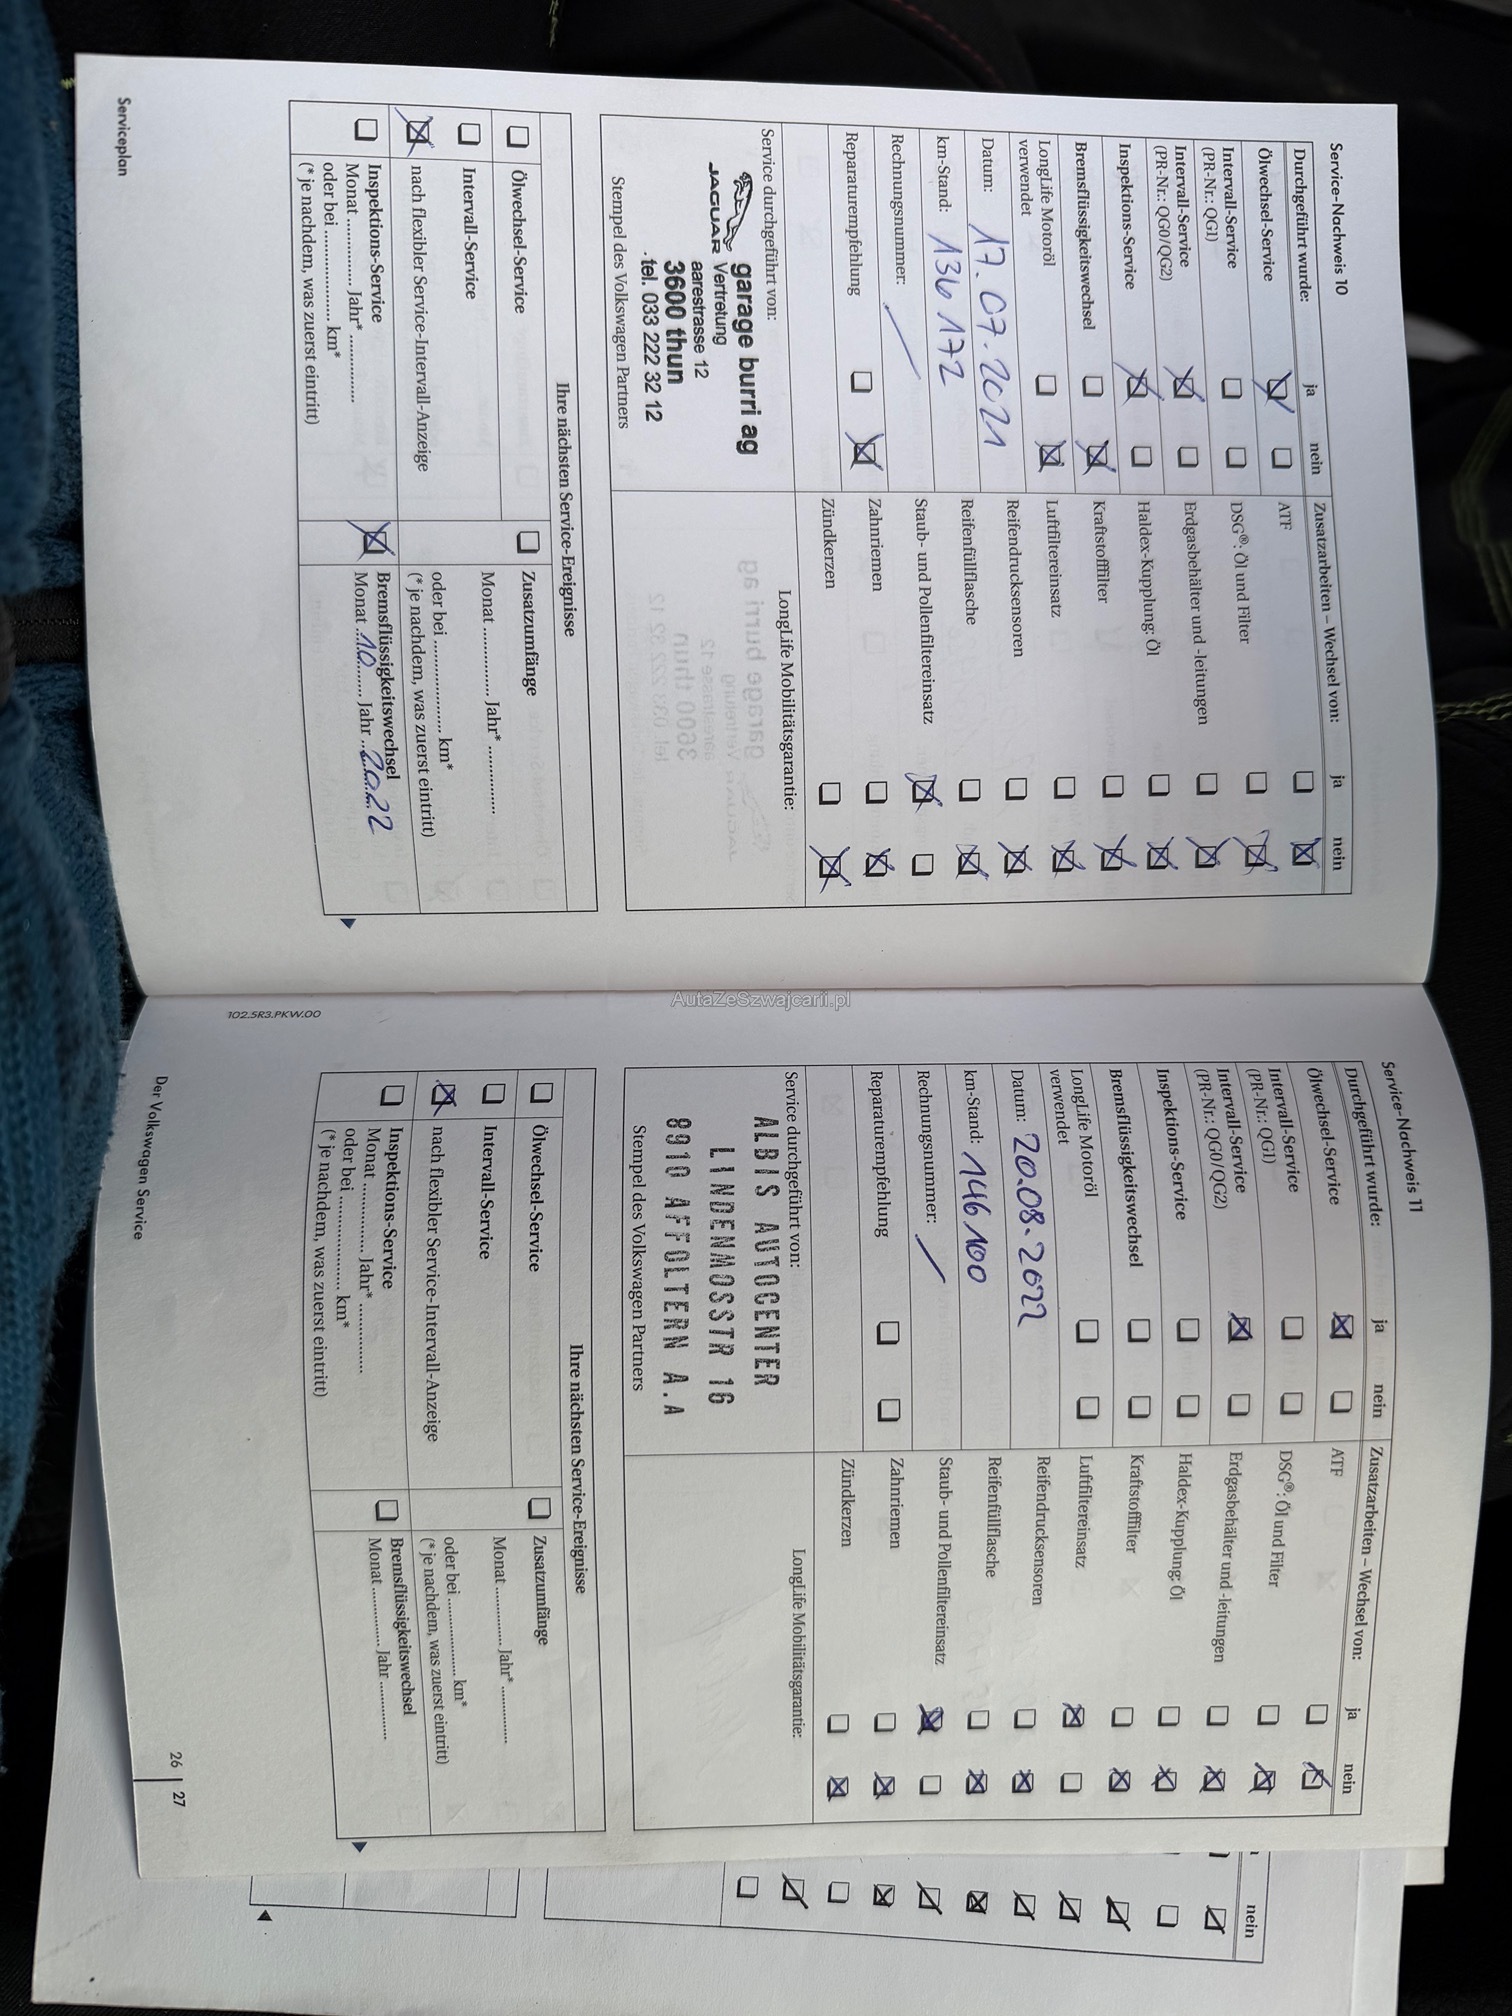 Service-Nachweis 10
Durchgeführt wurde: ja nein
Ölwechsel-Service
Intervall-Service
(PR-Nr.: QG1)
Intervall-Service
(PR-Nr.: QG0/QG2)
Inspektions-Service
Bremsflüssigkeitswechsel
LongLife Motoröl
verwendet
Datum: 17.07.2021
km-Stand: 136 172
Rechnungsnummer:
Reparaturempfehlung
Zusatzarbeiten – Wechsel von: ja nein
ATF
DSG®: Öl und Filter
Erdgasbehälter und -leitungen
Haldex-Kupplung: Öl
Kraftstofffilter
Luftfiltereinsatz
Reifendrucksensoren
Reifenfüllflasche
Staub- und Pollenfiltereinsatz
Zahnriemen
Zündkerzen
Service durchgeführt von:
garage burri ag
JAGUAR Vertretung
aarestrasse 12
3600 thun
tel. 033 222 32 12
Stempel des Volkswagen Partners
LongLife Mobilitätsgarantie:
Ihre nächsten Service-Ereignisse
Ölwechsel-Service
Intervall-Service
nach flexibler Service-Intervall-Anzeige
Inspektions-Service
Monat .................. Jahr* ..................
oder bei .................. km*
(* je nachdem, was zuerst eintritt)
Zusatzumfänge
Monat .................. Jahr* ..................
oder bei .................. km*
(* je nachdem, was zuerst eintritt)
Bremsflüssigkeitswechsel
Monat ...10... Jahr ...2022
Serviceplan
AutaZeSzwajcarii.pl
Service-Nachweis 11
Durchgeführt wurde: ja nein
Ölwechsel-Service
Intervall-Service
(PR-Nr.: QG1)
Intervall-Service
(PR-Nr.: QG0/QG2)
Inspektions-Service
Bremsflüssigkeitswechsel
LongLife Motoröl
verwendet
Datum: 20.08.2022
km-Stand: 146 100
Rechnungsnummer:
Reparaturempfehlung
Zusatzarbeiten – Wechsel von: ja nein
ATF
DSG®: Öl und Filter
Erdgasbehälter und -leitungen
Haldex-Kupplung: Öl
Kraftstofffilter
Luftfiltereinsatz
Reifendrucksensoren
Reifenfüllflasche
Staub- und Pollenfiltereinsatz
Zahnriemen
Zündkerzen
Service durchgeführt von:
ALBIS AUTOCENTER
LINDENMOSSTR 16
8910 AFFOLTERN A.A
Stempel des Volkswagen Partners
LongLife Mobilitätsgarantie:
Ihre nächsten Service-Ereignisse
Ölwechsel-Service
Intervall-Service
nach flexibler Service-Intervall-Anzeige
Inspektions-Service
Monat .................. Jahr* ..................
oder bei .................. km*
(* je nachdem, was zuerst eintritt)
Zusatzumfänge
Monat .................. Jahr* ..................
oder bei .................. km*
(* je nachdem, was zuerst eintritt)
Bremsflüssigkeitswechsel
Monat .................. Jahr ..................
102.5R3.PKW.00
Der Volkswagen Service
26 | 27
nein